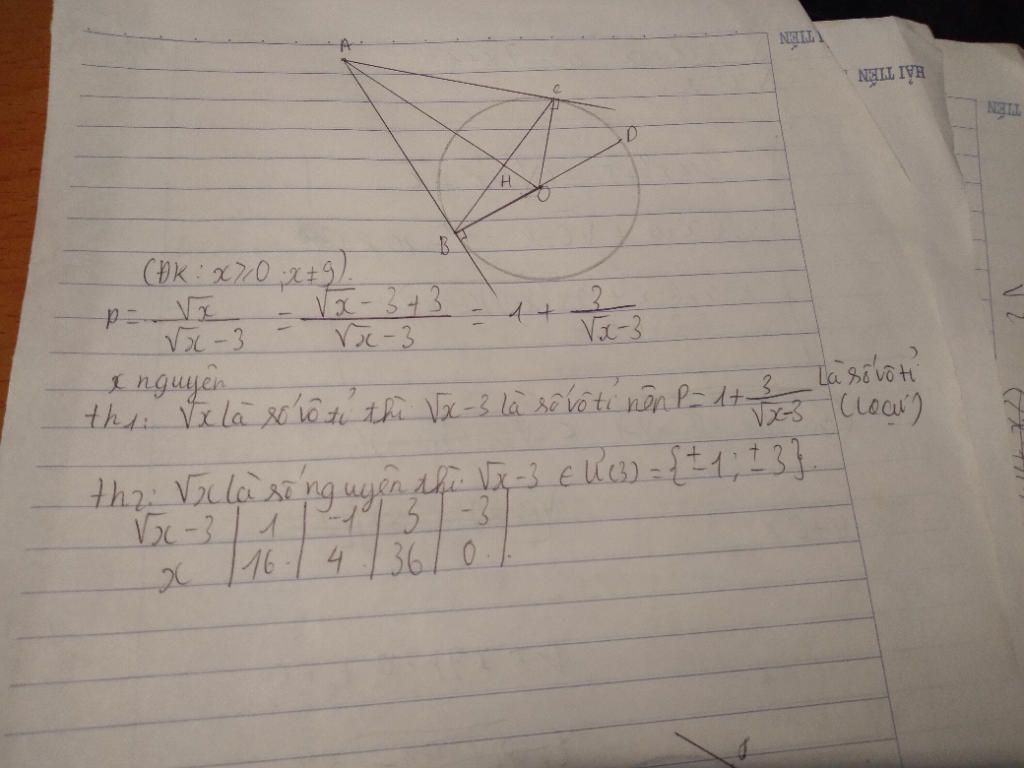 A
C
D
H
O
B
TIẾN
HẢI TIẾN
TIẾN
(ĐK: x ≥ 0, x ≠ 9).
P = √x / (√x - 3) = (√x - 3 + 3) / (√x - 3) = 1 + 3 / (√x - 3)
x nguyên
th1: √x là số vô tỉ thì √x - 3 là số vô tỉ nên P = 1 + 3 / (√x - 3) là số vô tỉ (loại)
th2: √x là số nguyên thì √x - 3 ∈ Ư(3) = {±1; ±3}.
√x - 3 | 1 | -1 | 3 | -3 |
x | 16 | 4 | 36 | 0 |